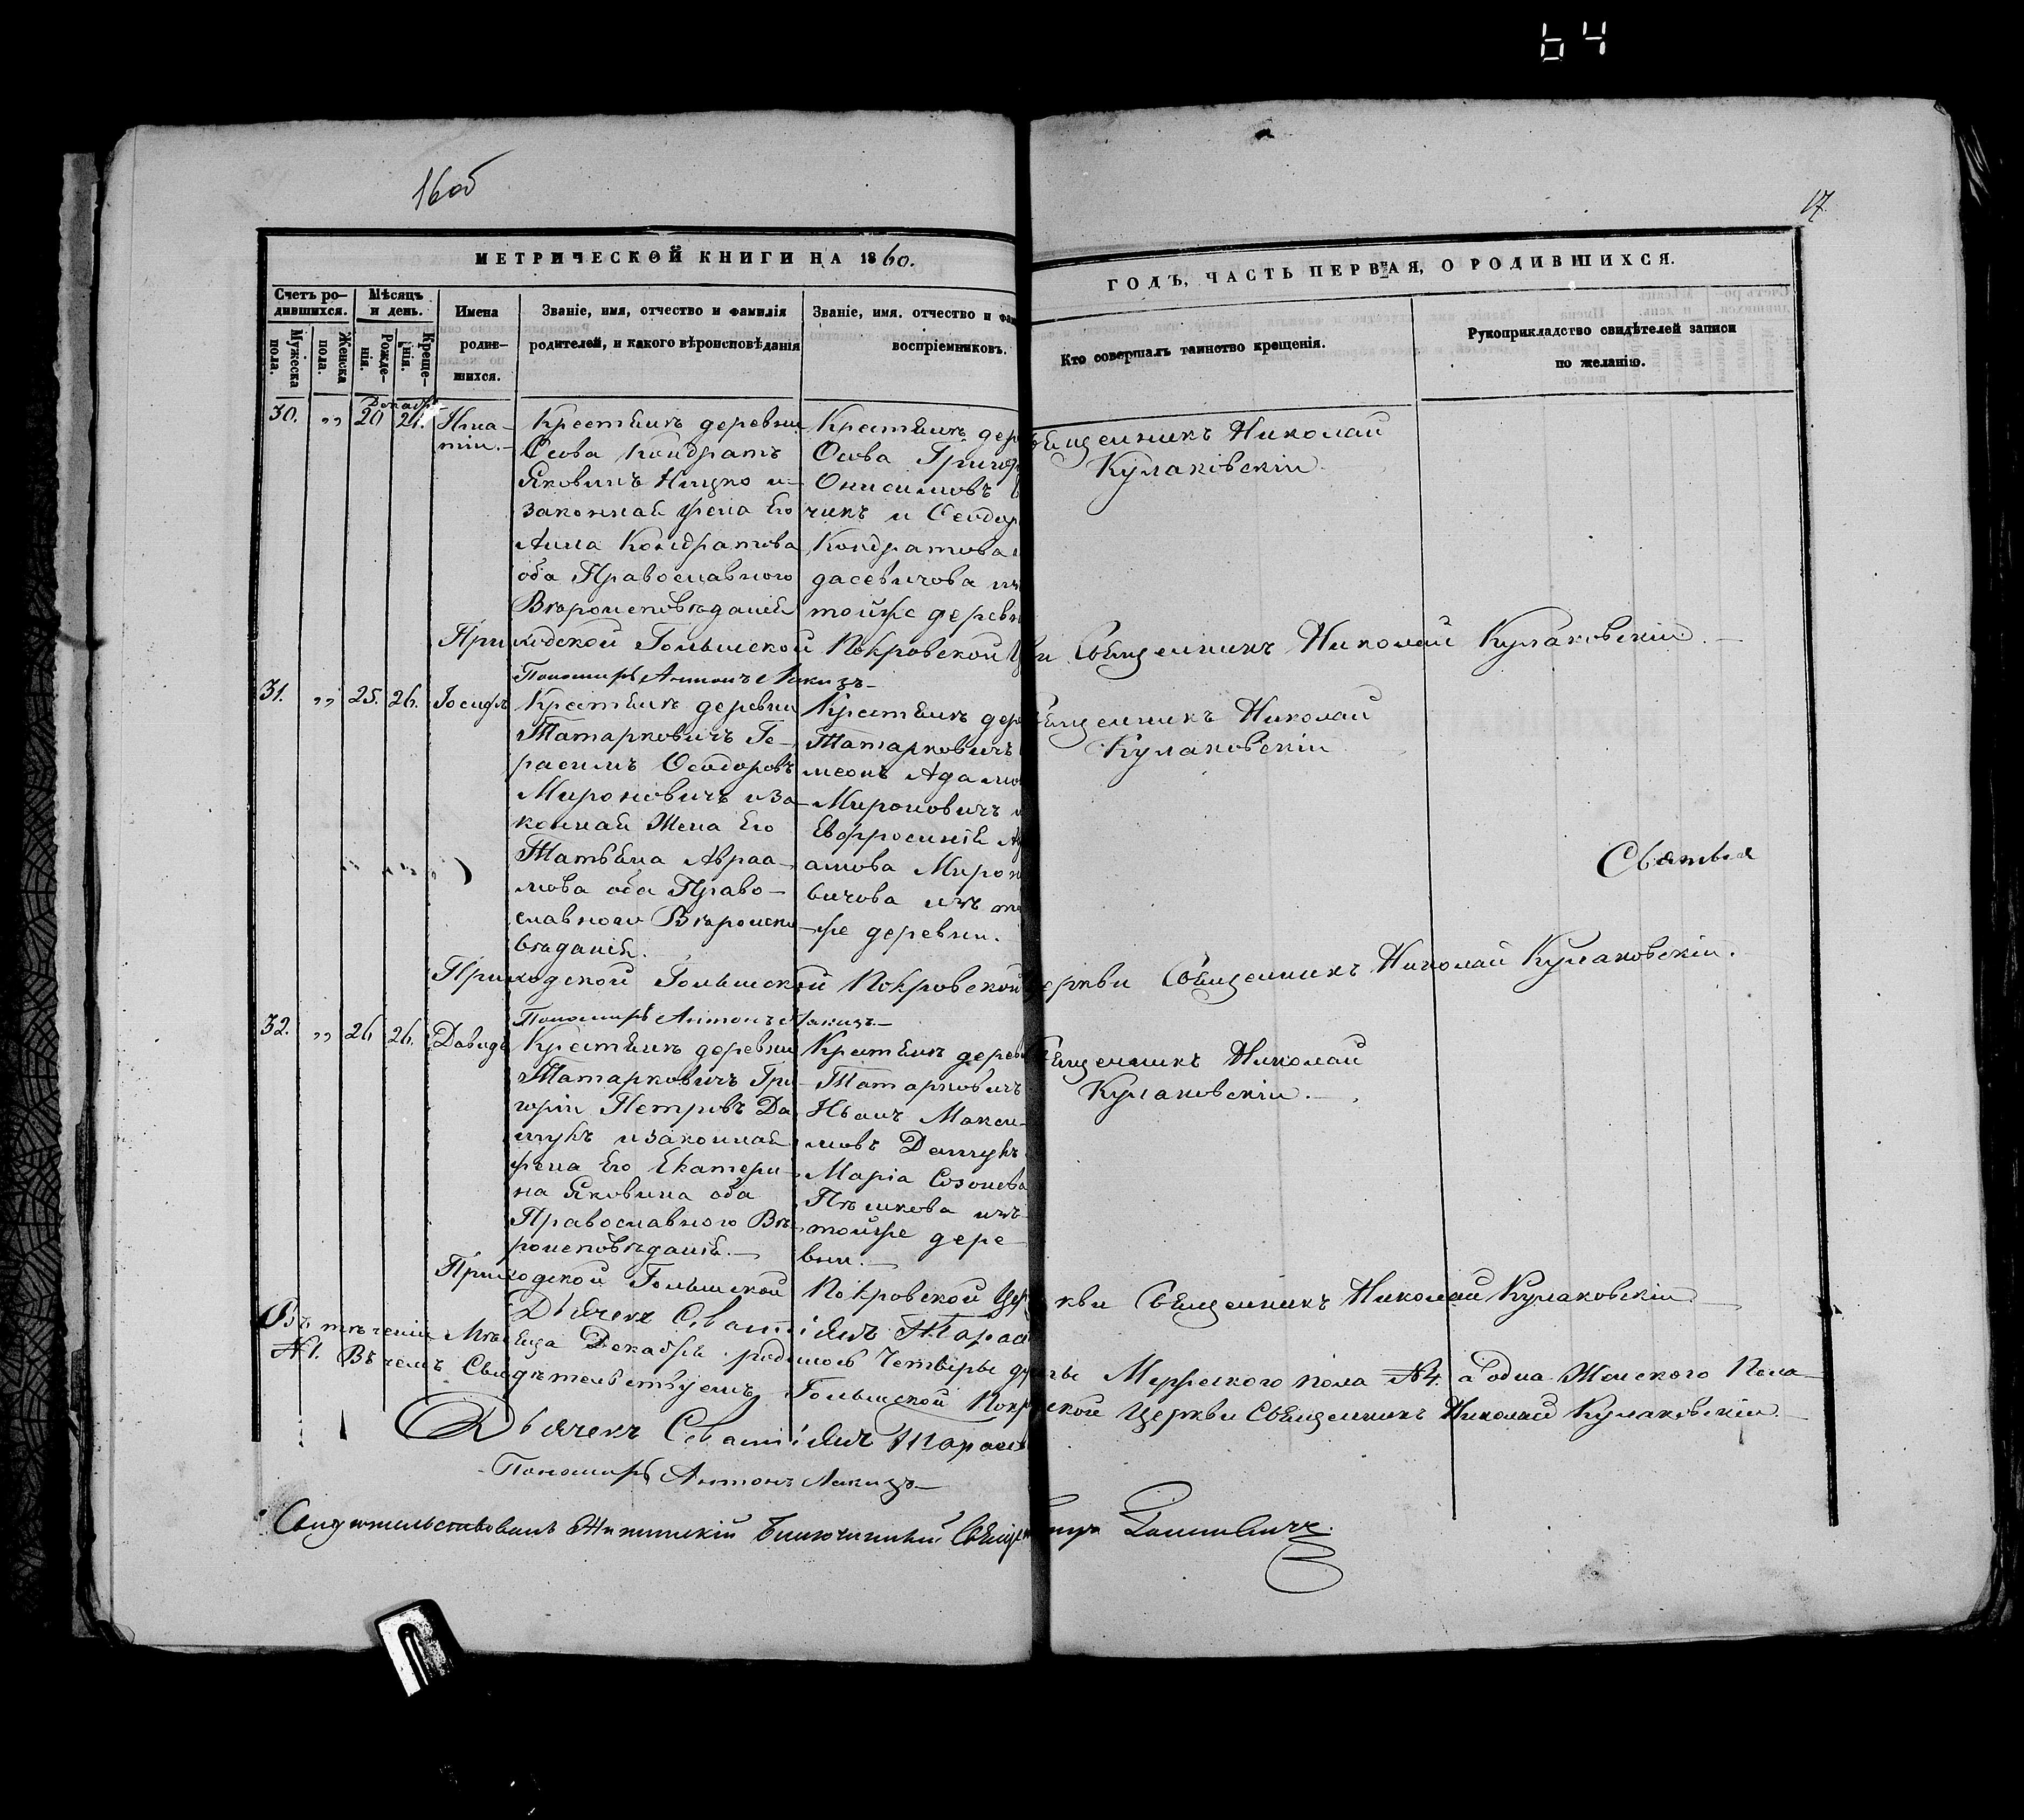 64
16об
17
МЕТРИЧЕСКОЙ КНИГИ НА 1860.
ГОДЪ, ЧАСТЬ ПЕРВАЯ, О РОДИВШИХСЯ.
Счетъ ро-
дившихся.
Мѣсяцъ
и день.
Мужеска
пола.
Женска
пола.
Рожде-
нія.
Креще-
нія.
Имена
родив-
шихся.
Званіе, имя, отчество и фамилія
родителей, и какого вѣроисповѣданія
Званіе, имя. отчество и фам
воспріемниковъ.
Кто совершалъ таинство крещенія.
Рукоприкладство свидѣтелей записи
по желанію.
Декабрь
30. „ 20 21. Игна-
тій.
Крестьянъ деревни
Осова Кондратъ
Яковинъ Ницко и
законная жена Его
Анна Кондратова
оба Православного
Вѣроисповѣданія
Крестьянъ дер
Осова Григор
Онисимовъ
чикъ и Ѳеодор
Кондратова
дасевичова изъ
тойже деревн
Священникъ Николай
Кулаковскій
Приходской Гольшской Покровской Цркви Священникъ Николай Кулаковскій.
Пономарь Антонъ Лакизъ
31. „ 25. 26. Іосифъ
Крестьянъ деревни
Татарковичъ Ге-
расимъ Ѳеодоровъ
Мироновичъ и за-
конная Жена Его
Татьяна Авраа-
мова оба Право-
славного Вѣроиспо
вѣданія.
Крестьянъ дер
Татарковичъ
меонъ Адамо
Мироновичъ и
Евфросинія А
амова Мирон
вичова изъ то
же деревни.
Священникъ Николай
Кулаковскій
Святыя
Приходской Гольшской Покровской Церкви Священникъ Николай Кулаковскій.
Пономарь Антонъ Лакизъ
32. „ 26 26. Давидъ
Крестьянъ деревни
Татарковичъ Гри-
горій Петровъ Да
шукъ и законная
жена Его Екатери-
на Яковина оба
Православного Вѣ-
роисповѣданія.
Крестьянъ дерев
Татарковичъ
Иванъ Макси-
мовъ Дашукъ
Марія Созонова
Пѣшкова изъ
тойже дере-
вни.
Священникъ Николай
Кулаковскій.
Приходской Гольшской Покровской Церкви Священникъ Николай Кулаковскій
Дьячекъ Севастіянъ Тарас
Въ теченіи Мѣсяца Декабря родилось Четыры души Мужеского пола №4. а одна Женского Пола
№1. Въ чемъ Свидѣтельствуемъ Гольшской Покровской Церкви Священникъ Николай Кулаковскій
Дьячекъ Севастіянъ Тарас
Пономарь Антонъ Лакизъ
Свидѣтельствовалъ Благочинный Священникъ